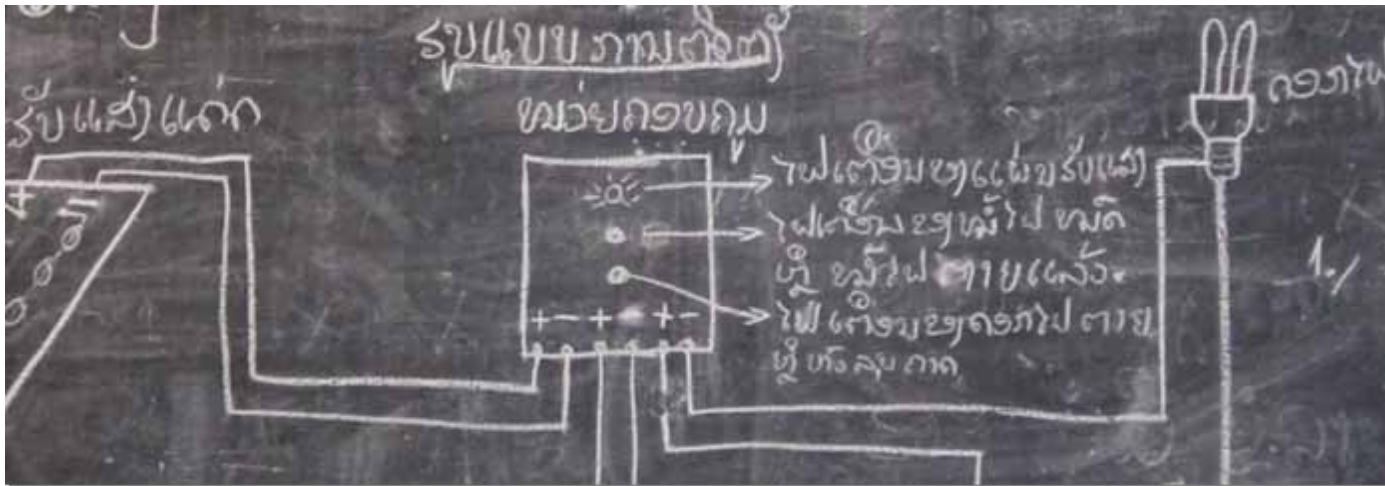 ຮູບແບບການຕິດຕັ້ງ
ຮັບແສງແດດ
ໜ່ວຍຄວບຄຸມ
ດອກໄຟ
ໄຟເຕືອນຂອງແຜ່ນຮັບແສງ
ໄຟເຕືອນຂອງໝໍ້ໄຟ ໝົດ
ຫຼື ໝໍ້ໄຟ ຕາຍແລ້ວ.
+ - + - + -
ໄຟເຕືອນຂອງດອກໄຟ ຕາຍ
ຫຼື ຫາງ ຂາດ
+ -
1./